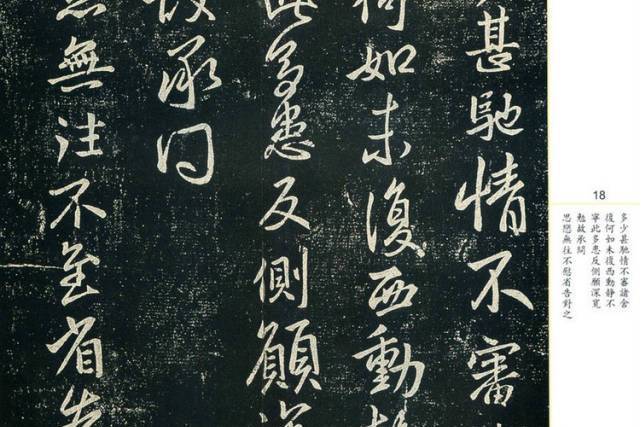 甚馳情不審
何如未復西動
此多患反側願深
故承问
無注不至省告
18
多少甚馳情不審諸舍
復何如未復西動靜不
寧此多患反側願深寬
勉故承問
思戀無往不慰省告對之